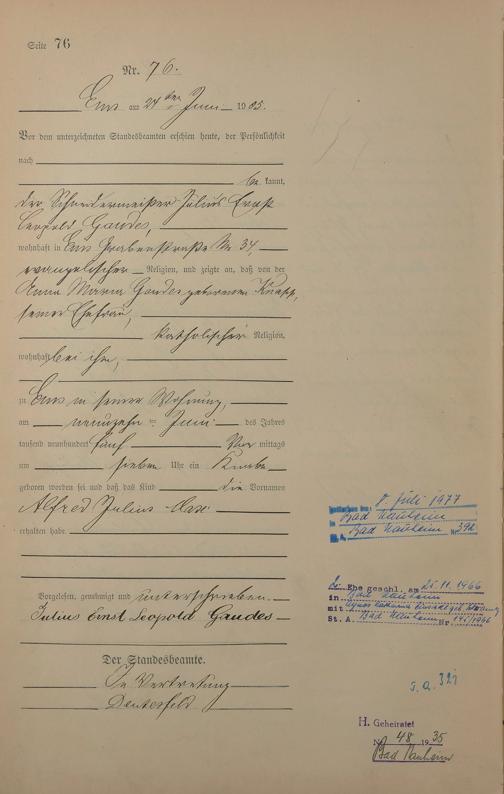 Seite 76
Nr. 76.
Ems am 24ten Juni 1905.
Vor dem unterzeichneten Standesbeamten erschien heute, der Persönlichkeit
nach
be kannt,
der Schneidermeister Julius Ernst
Leopold Gandes,
wohnhaft in Ems Grabenstraße Nr 34,
evangelischer Religion, und zeigte an, daß von der
Anna Maria Gandes geborenen
seiner Ehefrau,
katholischer Religion,
wohnhaft bei ihm,
zu Ems in seiner Wohnung,
am neunzehn ten Juni des Jahres
tausend neunhundert fünf Vor mittags
um sieben Uhr ein Knabe
geboren worden sei und daß das Kind die Vornamen
Alfred Julius Max
erhalten habe.
Vorgelesen, genehmigt und unterschrieben.
Julius Ernst Leopold Gandes
Der Standesbeamte.
In Vertretung
8. Juli 1977
in Bad Nauheim
St. A. Bad Nauheim Nr 392
Ehe geschl. am 25.11.1966
in Bad Nauheim
mit
St. A. Bad Nauheim Nr. 145/1966
s.a. 321
H. Geheiratet
Nr 48 1935
Bad Nauheim